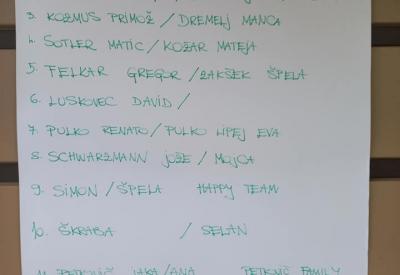 3. KOZMUS PRIMOŽ / DREMELJ MANCA
4. SOTLER MATIC / KOZAR MATEJA
5. FELKAR GREGOR / ZAKŠEK ŠPELA
6. LUSKOVEC DAVID /
7. PULKO RENATO / PULKO LIPEJ EVA
8. SCHWARZMANN JOŽE / MOJCA
9. SIMON / ŠPELA HAPPY TEAM
10. ŠKRABA / SELAN
11. PETKOVIČ JAKA / ANA PETKOVIČ FAMILY